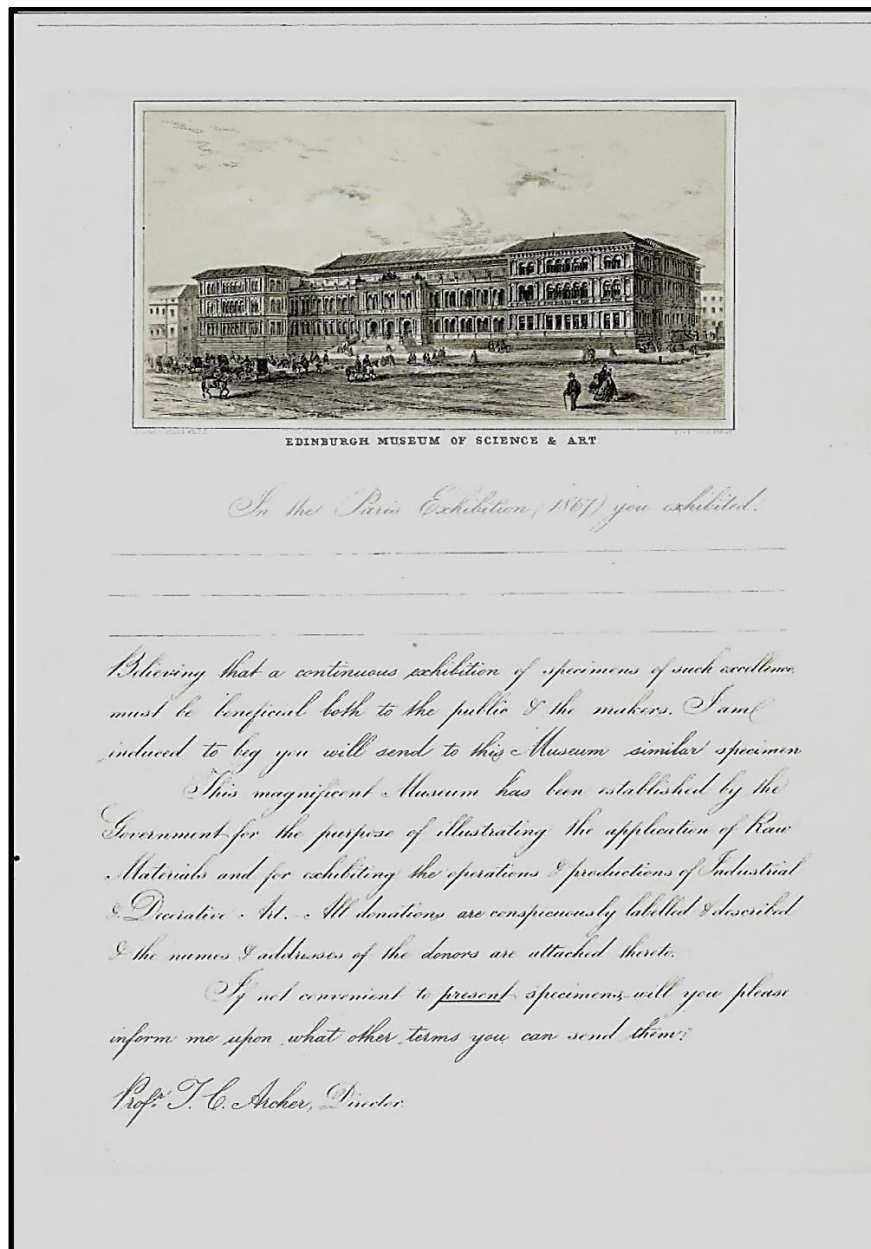 EDINBURGH MUSEUM OF SCIENCE & ART
In the Paris Exhibition, (1867) you exhibited.
Believing that a continuous exhibition of specimens of such excellence
must be beneficial both to the public & the makers. I am
induced to beg you will send to this Museum similar specimen
This magnificent Museum has been established by the
Government for the purpose of illustrating the application of Raw
Materials and for exhibiting the operations & productions of Industrial
& Decorative Art. All donations are conspicuously labelled & described
& the names & addresses of the donors are attached thereto.
If not convenient to present specimens will you please
inform me upon what other terms you can send them;
Profr. T. C. Archer, Director.